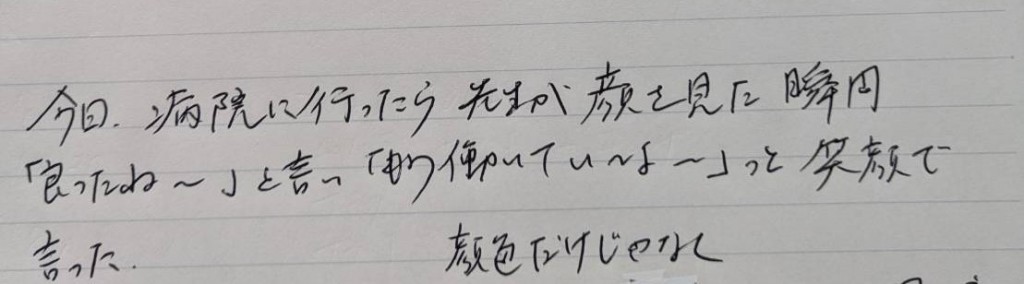 今日、病院に行ったら 先生が 顔を見た 瞬間
「良ったね〜」と言い「もう働いていいよ〜」っと 笑顔で
言った. 顔色だけじゃなく